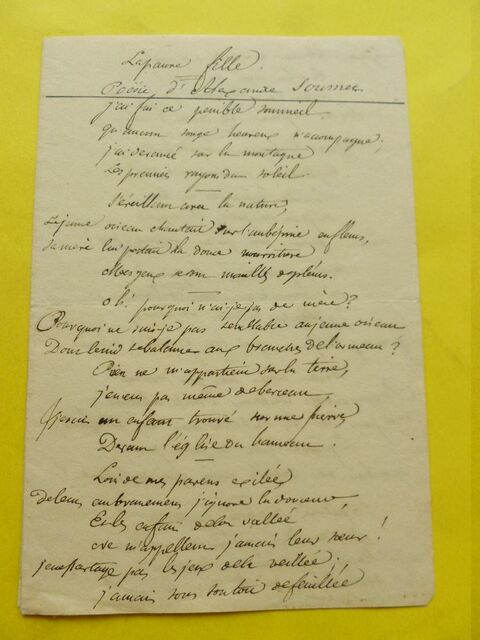 La pauvre fille.
Poésie d'Alexandre Soumet
j'ai fui ce penible sommeil
qu'aucun songe heureux n'accompagne,
j'ai devancé sur la montagne
Les premiers rayons du soleil.
S'éveillant avec la nature,
Le jeune oiseau chantait sur l'aubepine en fleurs,
Sa mère lui portait la douce nourriture
Mes yeux se sont mouillés de pleurs.
oh! pourquoi n'ai-je pas de mère?
Pourquoi ne suis-je pas semblable au jeune oiseau
Dont le nid se balance aux branches de l'ormeau?
Rien ne m'appartient sur la terre,
je n'eus pas même de berceau
Et je suis un enfant trouvé sur une pierre
Devant l'église du hameau.
Loin de mes parens exilée
De leurs embrassemens j'ignore la douceur,
Et les enfans de la vallée
ne m'appellent jamais leur sœur!
je ne partage pas les jeux de la veillée;
jamais sous son toit de feuillée